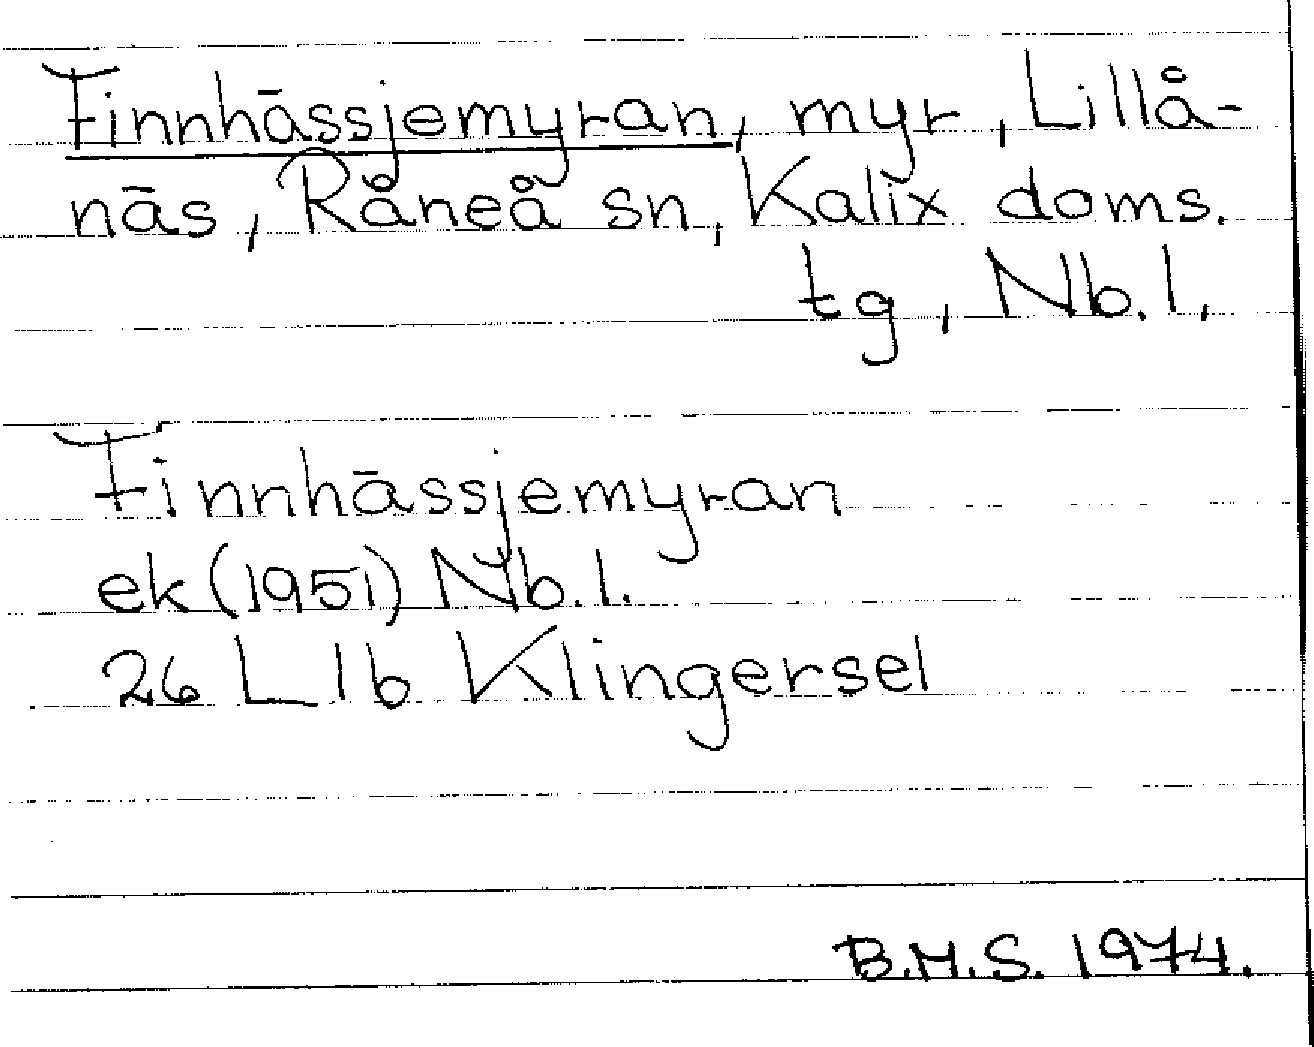 Finnhässjemyran, myr, Lillå-
näs, Råneå sn, Kalix doms.
tg, Nb. l.
Finnhässjemyran
ek (1951) Nb. l.
26 L 1b Klingersel
B.M.S. 1974.